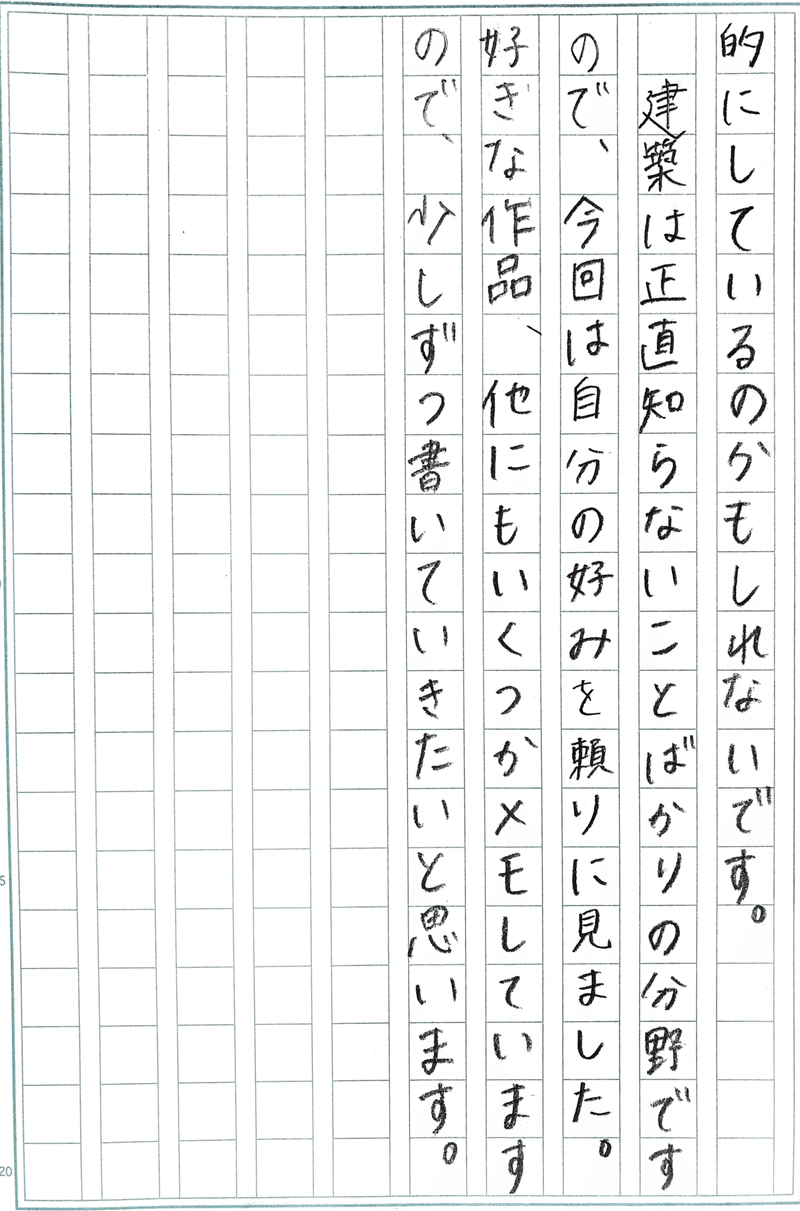 的にしているのかもしれないです。
建築は正直知らないことばかりの分野です
ので、今回は自分の好みを頼りに見ました。
好きな作品、他にもいくつかメモしています
ので、少しずつ書いていきたいと思います。
5
20